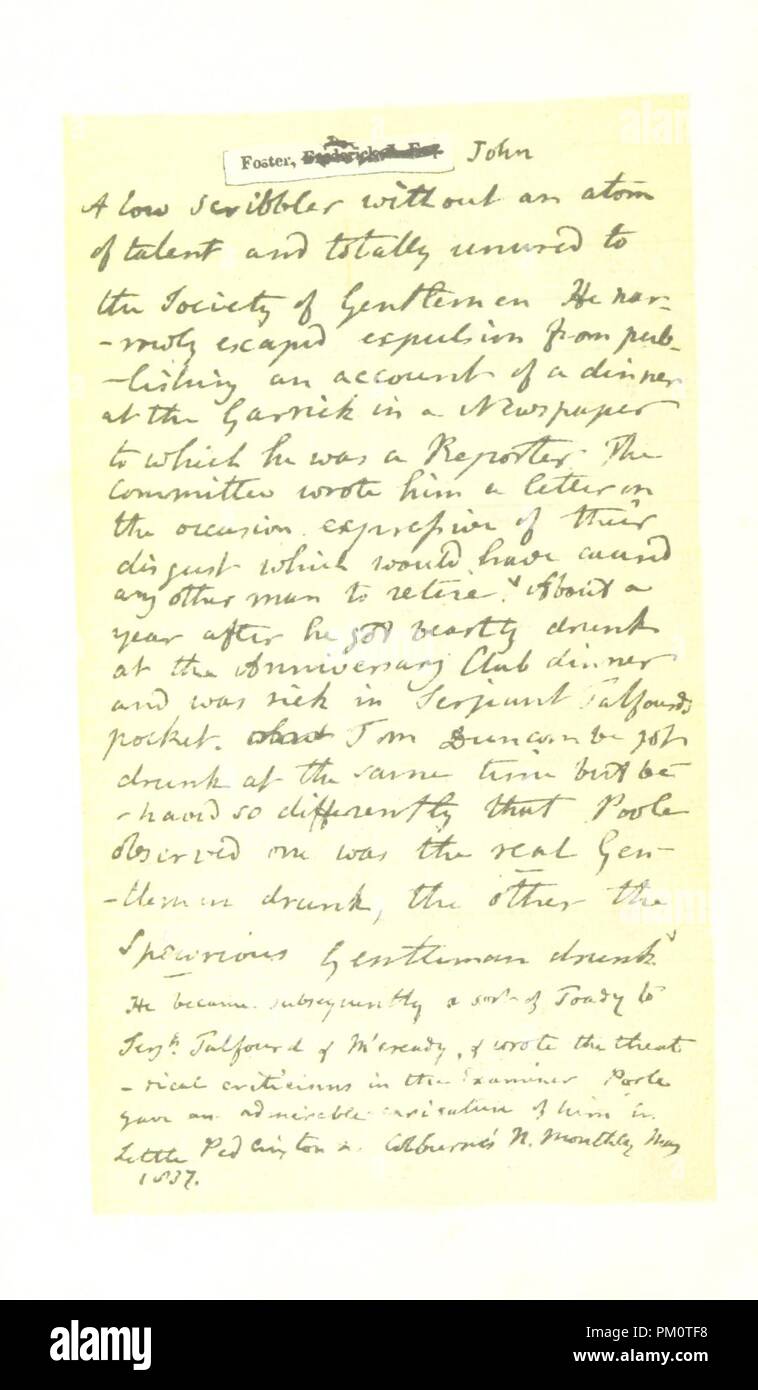 Foster, John
A low scribbler without an atom
of talent and totally unused to
the Society of Gentlemen He nar-
-rowly escaped expulsion from pub-
-lishing an account of a dinner
at the Garrick in a Newspaper
to which he was a Reporter. The
Committee wrote him a letter on
the occasion expressive of their
disgust which would have caused
any other man to retire. About a
year after he got beastly drunk
at the Anniversary Club dinner
and was sick in Serjeant Talfourds
pocket. Tom Duncombe got
drunk at the same time but be-
-haved so differently that Poole
observed one was the real Gen-
-tleman drunk, the other the
Spewrious Gentleman drunk
He became subsequently a sort of Toady to
Serjt. Talfourd & McCready, & wrote the theat
-rical criticisms in the Examiner Poole
gave an admirable caricature of him in
Little Pedlington in Colburne's N. Monthly May
1837.
alamy
a
Image ID: PM0TF8
www.alamy.com